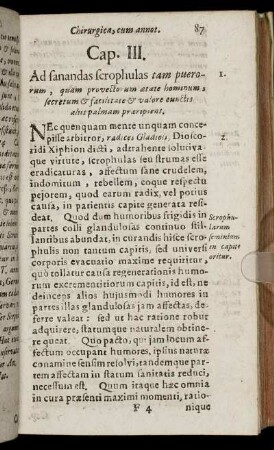 Chirurgica, cum annot. 87
Cap. III.
Ad sanandas scrophulas tam puero- 1.
rum, quam provecto um ætate hominum,
secretum & facilitate & valore cunctis
aliis palmam præripiens.
NEc quenquam mente unquam conce-
pisse arbitror, radices Gladioli, Diosco- 2.
ridi Xiphion dicti, adtrahente solutiva-
que virtute, scrophulas seu strumas esse
eradicaturas, affectum sane crudelem,
indomitum, rebellem, coque respectu
pejorem, quod earum radix, vel potius
causa, in patientis capite generata resi-
deat. Quod dum humoribus frigidis in Scrophu-
partes colli glandulosas continuo stil- larum
lantibus abundat, in curandis hisce scro- seminium
phulis non tantum capitis, sed universi in capite
corporis evacuatio maxime requiritur, oritur.
quò tollatur causa regenerationis humo-
rum excrementitiorum capitis, id est, ne
deinceps alios hujusmodi humores in
partes illas glandulosas jam affectas, de-
ferre valeat: sed ut hac ratione robur
adquirere, statumque naturalem obtine-
re queat. Quo pacto, qui jam locum af-
fectum occupant humores, ipsius naturæ
conamine sensim resolvi, tandemque par-
tem affectam in statum sanitatis reduci,
necessum est. Quum itaque hæc omnia
in cura præsenti maximi momenti, ratio-
F 4 nique